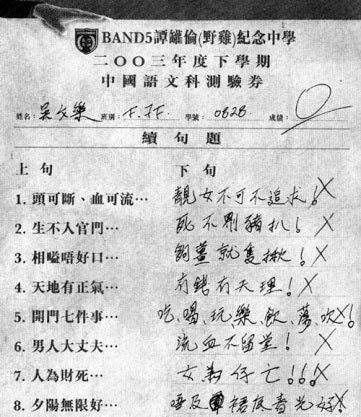 BAND5譚雄倫(野雞)紀念中學
二〇〇三年度下學期
中國語文科測驗卷
姓名: 吳文樂 班別: F.5E 學號: 0828 成績: 0
續句題
上句 下句
1. 頭可斷、血可流… 靚女不可不追求! X
2. 生不入官門… 死不劏豬扒! X
3. 相嗌唔好口… 夠薑就隻揪! X
4. 天地有正氣… 有錢有天理! X
5. 開門七件事… 吃、喝、玩、樂、飲、蕩、吹! X
6. 男人大丈夫… 流血不留並! X
7. 人為財死… 女為仔亡!!! X
8. 夕陽無限好… X